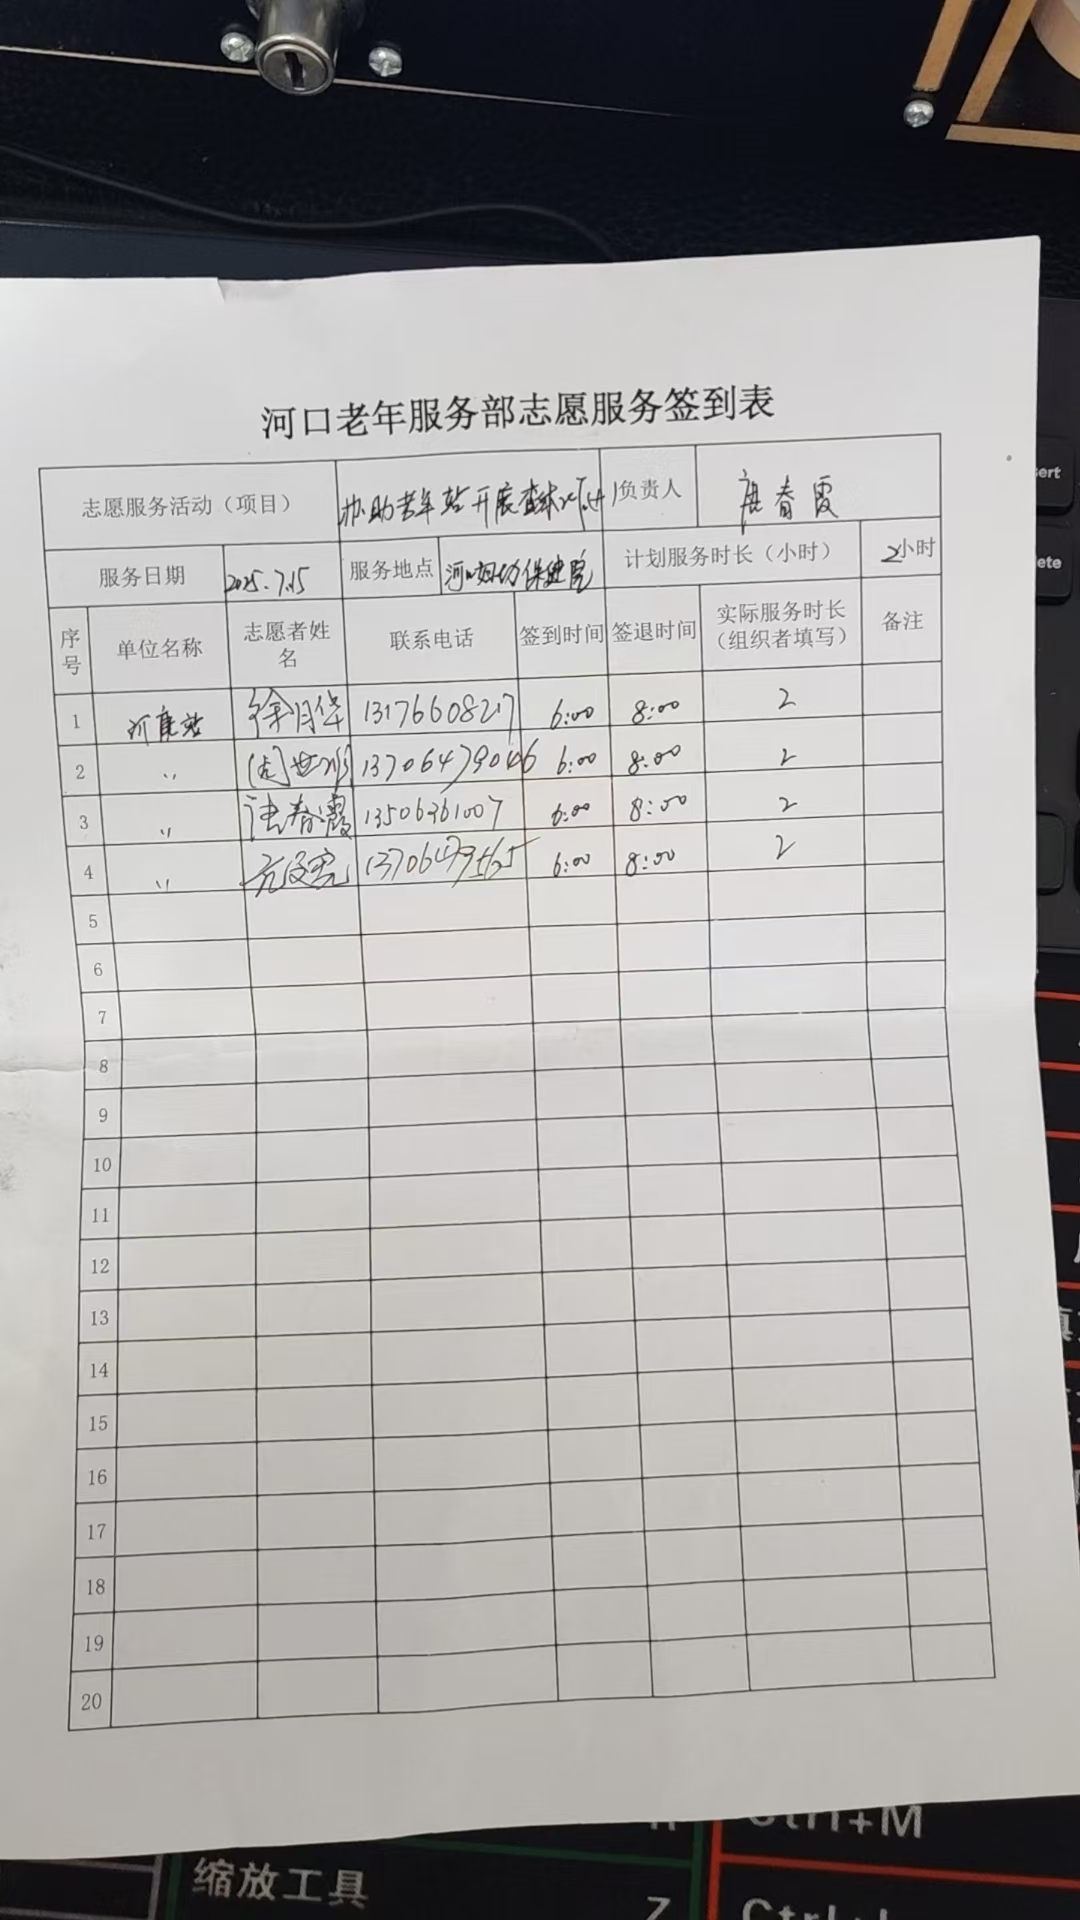 河口老年服务部志愿服务签到表
志愿服务活动（项目） 协助老年站开展查体 负责人 唐春霞
服务日期 2025.7.15 服务地点 河口妇幼保健院 计划服务时长（小时） 2小时
序号 单位名称 志愿者姓名 联系电话 签到时间 签退时间 实际服务时长（组织者填写） 备注
1 河康站 徐月华 13176608217 6:00 8:00 2
2 〃 周世 13706479046 6:00 8:00 2
3 〃 春霞 13506361007 6:00 8:00 2
4 〃 6:00 8:00 2
5
6
7
8
9
10
11
12
13
14
15
16
17
18
19
20
Ctrl+M
缩放工具
Z